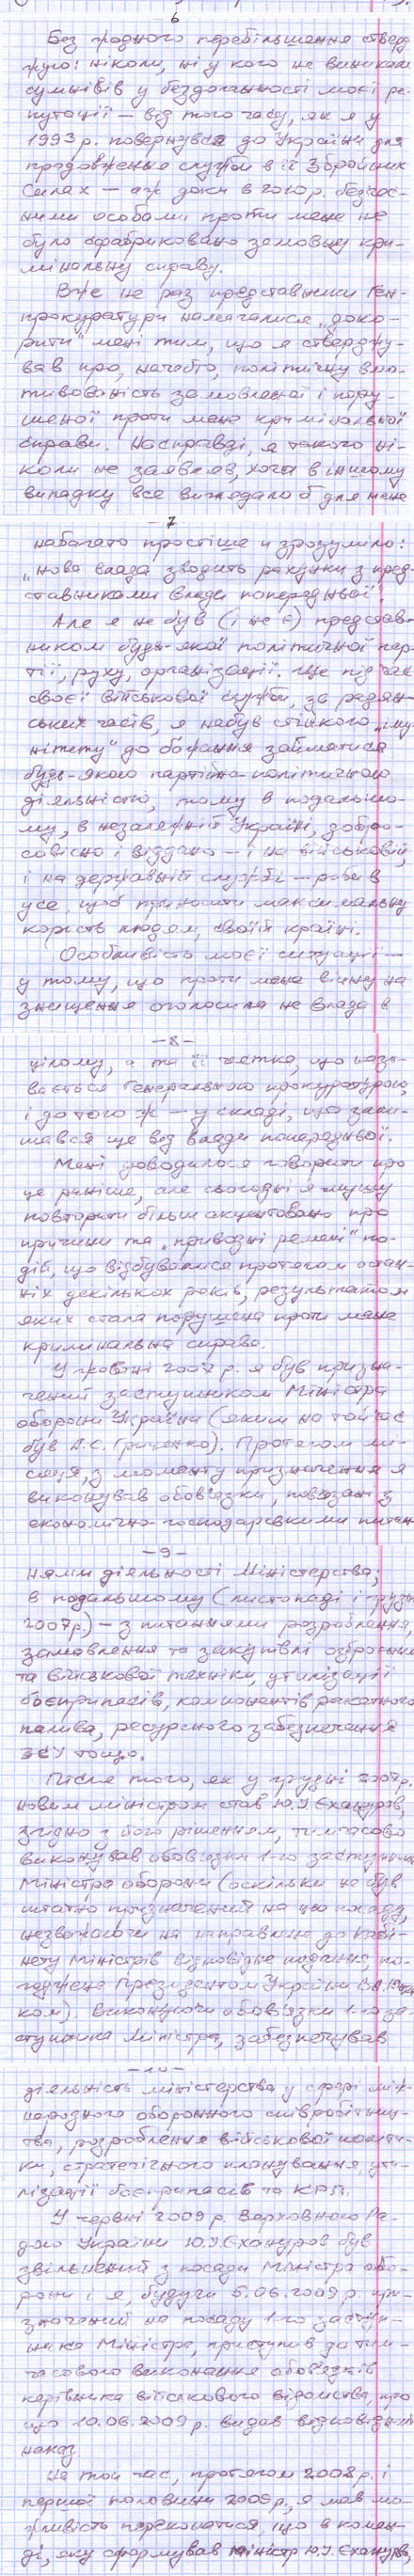 6
Без жодного перебільшення стверд-
жую: ніколи, ні у кого не виникали
сумнівів у бездоганності моєї ре-
путації — від того часу, як я у
1993 р. повернувся до України для
продовження служби в її Збройних
Силах — аж доки в 2010 р. безчес-
ними особами проти мене не
було сфабриковано замовну кри-
мінальну справу.
Вже не раз представники Ген-
прокуратури намагалися „доко-
рити" мені тим, що я стверджу-
вав про, начебто, політичну вмо-
тивованість замовленої і пору-
шеної проти мене кримінальної
справи. Насправді, я такого ні-
коли не заявляв, хоча в іншому
випадку все виглядало б для мене
- 7
набагато простіше й зрозуміло:
„нова влада зводить рахунки з пред-
ставниками влади попередньої".
Але я не був (і не є) представ-
ником будь-якої політичної пар-
тії, руху, організації. Ще під час
своєї військової служби, за радян-
ських часів, я набув стійкого „іму-
нітету" до бажання займатися
будь-якою партійно-політичною
діяльністю, тому в подальшо-
му, в незалежній Україні, добро-
совісно і віддано — і на військовій,
і на державній службі — робив
усе, щоб приносити максимальну
користь людям, своїй країні.
Особливість моєї ситуації —
у тому, що проти мене війну на
знищення оголосила не влада в
- 8 -
цілому, а та її частка, що нази-
вається Генеральною прокуратурою,
і до того ж — у складі, що зали-
шався ще від влади попередньої.
Мені доводилося говорити про
це раніше, але сьогодні я мушу
повторити більш акцентовано про
причини та „привідні ремені" по-
дій, що відбувалися протягом остан-
ніх декількох років, результатом
яких стала порушена проти мене
кримінальна справа.
У жовтні 2007 р. я був призна-
чений заступником Міністра
оборони України (яким на той час
був А.С. Гриценко). Протягом мі-
сяця, з моменту призначення я
виконував обов'язки, пов'язані з
економічно-господарськими питан-
- 9 -
нями діяльності Міністерства;
в подальшому (листопаді і грудні
2007 р.) — з питаннями розроблення,
замовлення та закупівлі озброєння
та військової техніки, утилізації
боєприпасів, компонентів ракетного
палива, ресурсного забезпечення
ЗСУ тощо.
Після того, як у грудні 2007 р.
новим міністром став Ю.І. Єхануров,
згідно з його рішенням, тимчасово
виконував обов'язки 1-го заступника
Міністра оборони (оскільки не був
штатно призначений на цю посаду,
незважаючи на направлене до Кабі-
нету Міністрів відповідне подання, по-
годжене Президентом України В.А. Ющен-
ком). Виконуючи обов'язки 1-го за-
ступника Міністра, забезпечував
- 10 -
діяльність міністерства у сфері між-
народного оборонного співробітниц-
тва, розроблення військової політи-
ки, стратегічного планування, ути-
лізації боєприпасів та КРП.
У червні 2009 р. Верховною Ра-
дою України Ю.І. Єхануров був
звільнений з посади Міністра обо-
рони і я, будучи 5.06.2009 р. при-
значений на посаду 1-го заступ-
ника Міністра, приступив до тим-
часового виконання обов'язків
керівника військового відомства, про
що 10.06.2009 р. видав відповідний
наказ.
На той час, протягом 2008 р. і
першої половини 2009 р., я мав мо-
жливість переконатися, що в коман-
ді, яку сформував міністр Ю.І. Єхануров,